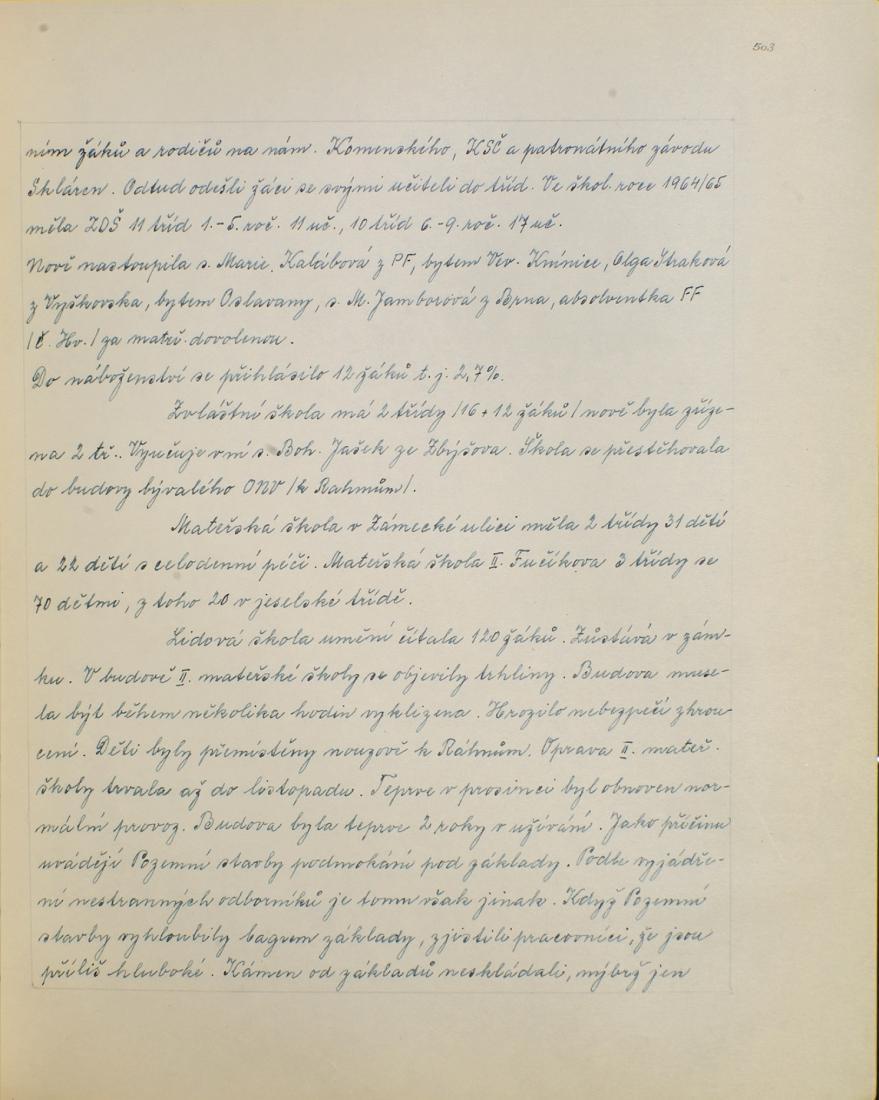 503
ním žáků a rodičů na nám. Komenského, KSČ a patronátního závodu
Skláren. Odtud odešli žáci se svými učiteli do tříd. Ve škol. roce 1964/65
měla ZDŠ 11 tříd 1.-5. roč. 11 uč., 10 tříd 6.-9. roč. 17 uč.
Nově nastoupila s. Marie Kalábová z PF, bytem Vev. Knínice, Olga Straková
z Vyškovska, bytem Oslavany, s. M. Jamborová z Brna, absolventka FF
/č. Hv./ za mateř. dovolenou.
Do náboženství se přihlásilo 12 žáků t. j. 2,7%.
Zvláštní škola má 2 třídy /16 + 12 žáků/ nově byla zříze-
na 2 tř.. Vyučuje v ní s. Boh. Jašek ze Zbýšova. Škola se přestěhovala
do budovy bývalého ONV /k Rahmům/.
Mateřská škola v Zámecké ulici měla 2 třídy 31 dětí
a 22 dětí s celodenní péčí. Mateřská škola II. Fučíkova 3 třídy se
70 dětmi, z toho 20 v jeselské třídě.
Lidová škola umění čítala 120 žáků. Zůstává v zám-
ku. V budově II. mateřské školy se objevily trhliny. Budova muse-
la být během několika hodin vyklizena. Hrozilo nebezpečí zhrou-
cení. Děti byly přemístěny nouzově k Ráhnům. Oprava II. mateř.
školy trvala až do listopadu. Teprve v prosinci byl obnoven nor-
mální provoz. Budova byla teprve 2 roky v užívání. Jako příčinu
uvádějí Pozemní stavby podmokání pod základy. Podle vyjádře-
ní nestranných odborníků je tomu však jinak. Když Pozemní
stavby vyhloubily bagrem základy, zjistili pracovníci, že jsou
příliš hluboké. Kámen od základů neskládali, nýbrž jen